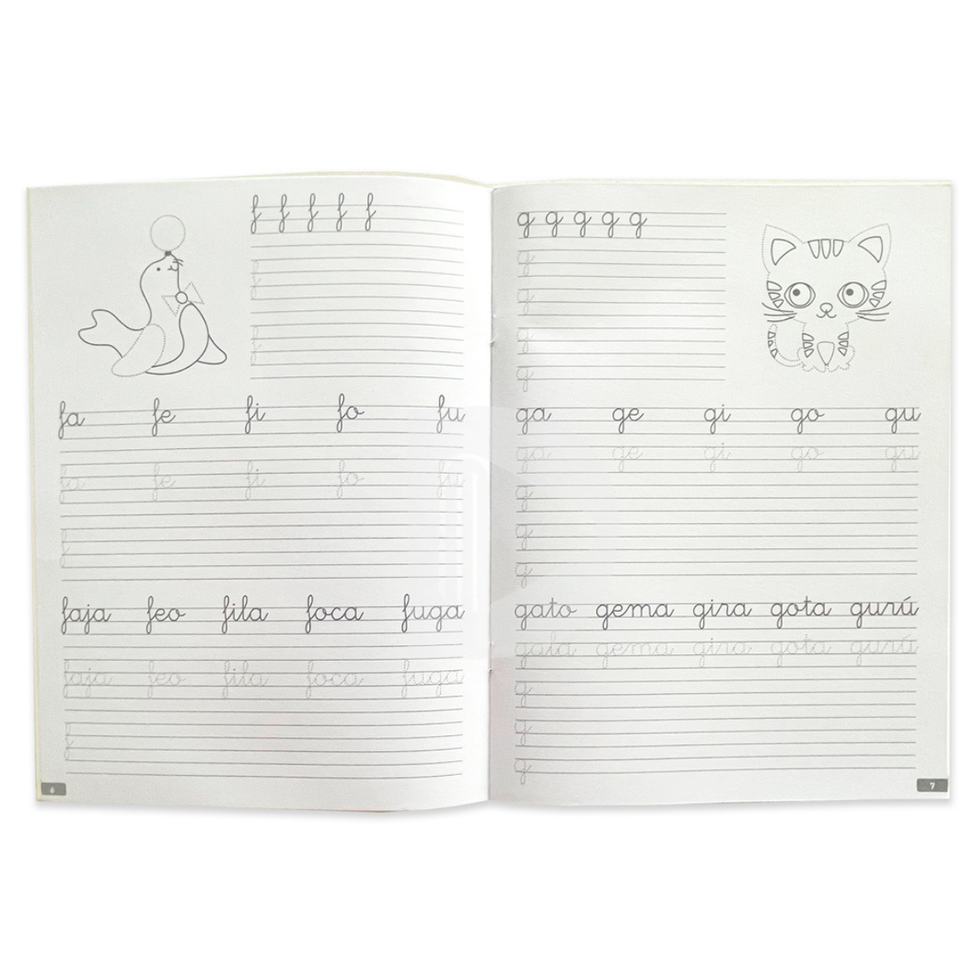 f f f f f
f
f
fa fe fi fo fu
fa fe fi fo fu
f
faja feo fila foca fuga
faja feo fila foca fuga
f
6
g g g g g
g
g
g
g
ga ge gi go gu
ga ge gi go gu
g
g
g
gato gema gira gota gurú
gala gema gira gota gurú
g
g
g
7